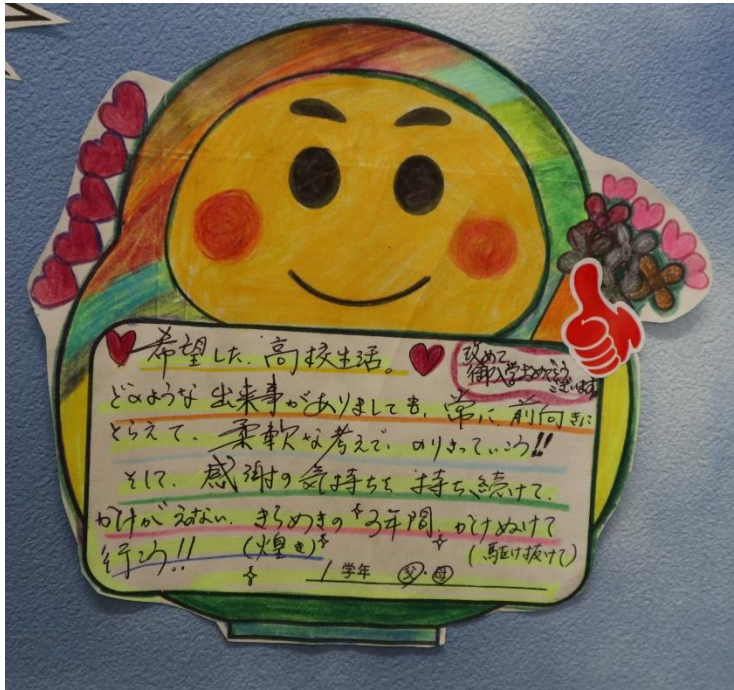 希望した、高校生活。
改めて
御入学おめでとう
ございます
どのような出来事がありましても、常に、前向きに
とらえて、柔軟な考えで、のりきっていこう!!
そして、感謝の気持ちを持ち続けて、
かけがえのない、きらめきの3年間、かけぬけて
行こう!! (煌き) (駆け抜けて)
1 学年 父・母